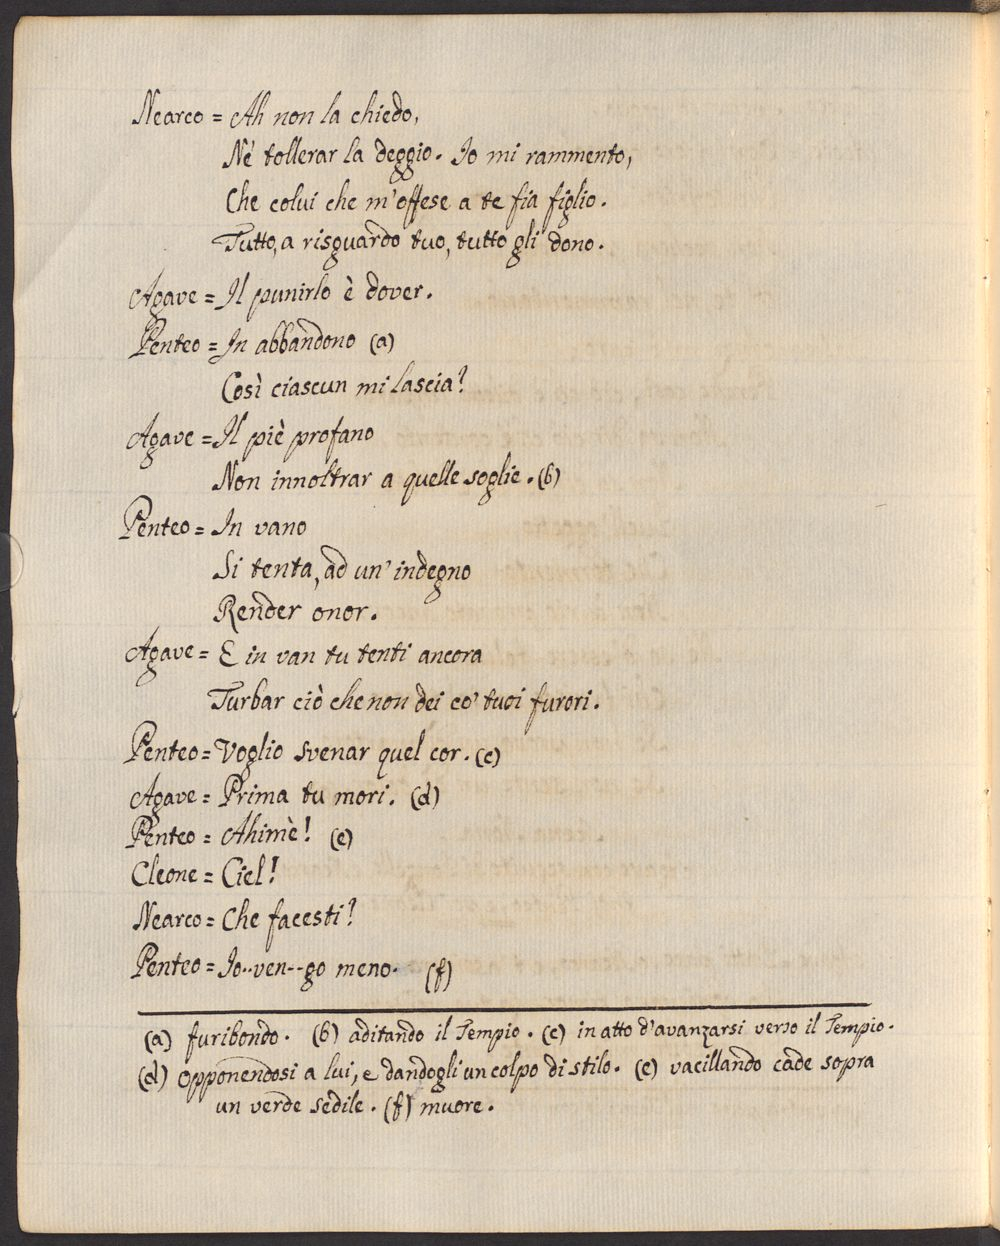 Nearco = Ah non la chiedo,
Nè tollerar la deggio. Io mi rammento,
Che colui che m'offese a te fia figlio.
Tutto, a risguardo tuo, tutto gli dono.
Agave = Il punirlo è dover.
Penteo = In abbandono (a)
Così ciascun mi lascia?
Agave = Il piè profano
Non innoltrar a quelle soglie. (b)
Penteo = In vano
Si tenta, ad un' indegno
Render onor.
Agave = E in van tu tenti ancora
Turbar ciò che non dei co' tuoi furori.
Penteo = Voglio svenar quel cor. (c)
Agave = Prima tu mori. (d)
Penteo = Ahimè! (e)
Cleone = Ciel!
Nearco = Che facesti?
Penteo = Io..ven--go meno. (f)
(a) furibondo. (b) aditando il Tempio. (c) in atto d'avanzarsi verso il Tempio.
(d) opponendosi a lui, e dandogli un colpo di stilo. (e) vacillando cade sopra
un verde sedile. (f) muore.